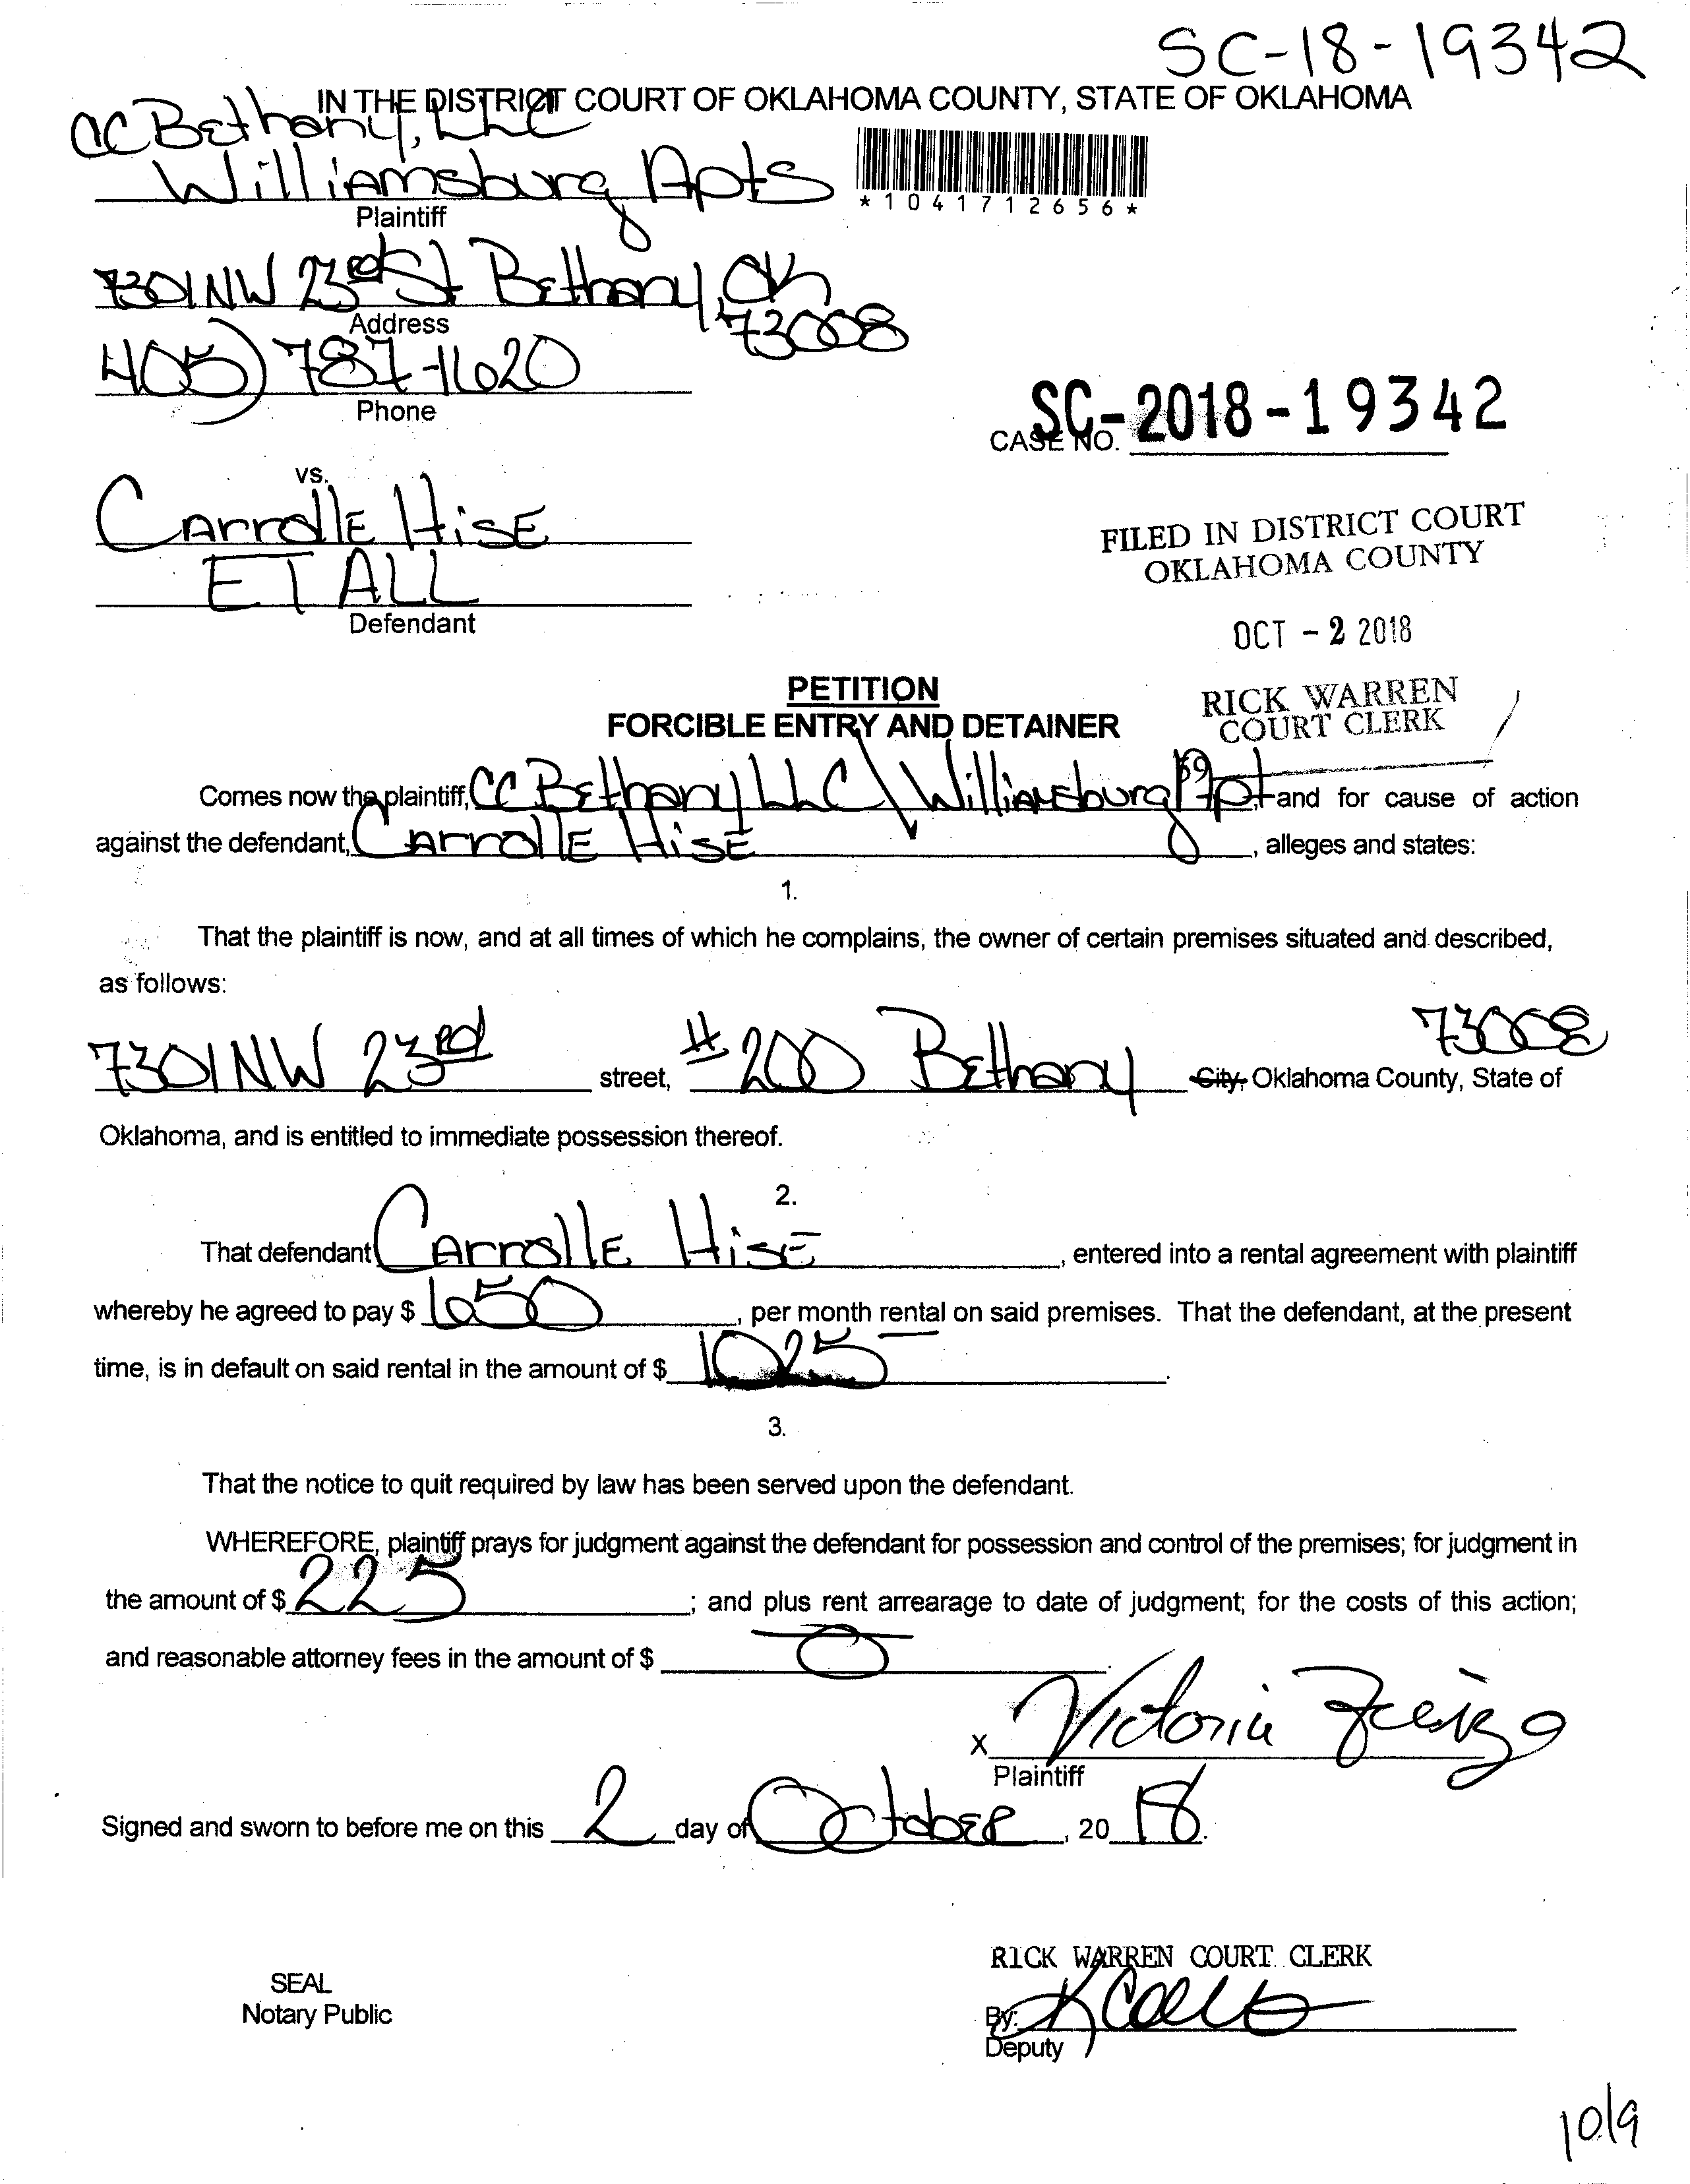 SC-18-19342
IN THE DISTRICT COURT OF OKLAHOMA COUNTY, STATE OF OKLAHOMA
CC Bethany, LLC
Williamsburg Apts
Plaintiff
*1041712656*
7301 NW 23rd St Bethany, OK
73008
Address
405) 787-1620
Phone
CASE NO. SC-2018-19342
vs.
CArrollE HisE
ET ALL
Defendant
FILED IN DISTRICT COURT
OKLAHOMA COUNTY
OCT - 2 2018
RICK WARREN
COURT CLERK
59
PETITION
FORCIBLE ENTRY AND DETAINER
Comes now the plaintiff, CC Bethany LLC \ Williamsburg Apt and for cause of action
against the defendant, CArrollE HisE, alleges and states:
1.
That the plaintiff is now, and at all times of which he complains, the owner of certain premises situated and described,
as follows:
73008
7301 NW 23rd street, #200 Bethany City, Oklahoma County, State of
Oklahoma, and is entitled to immediate possession thereof.
2.
That defendant CArrollE HisE, entered into a rental agreement with plaintiff
whereby he agreed to pay $ 650, per month rental on said premises. That the defendant, at the present
time, is in default on said rental in the amount of $ 1025.
3.
That the notice to quit required by law has been served upon the defendant.
WHEREFORE, plaintiff prays for judgment against the defendant for possession and control of the premises; for judgment in
the amount of $ 225; and plus rent arrearage to date of judgment; for the costs of this action;
and reasonable attorney fees in the amount of $ 0.
x Victoria
Plaintiff
Signed and sworn to before me on this 2 day of October, 2018.
SEAL
Notary Public
RICK WARREN COURT CLERK
By:
Deputy
10/9